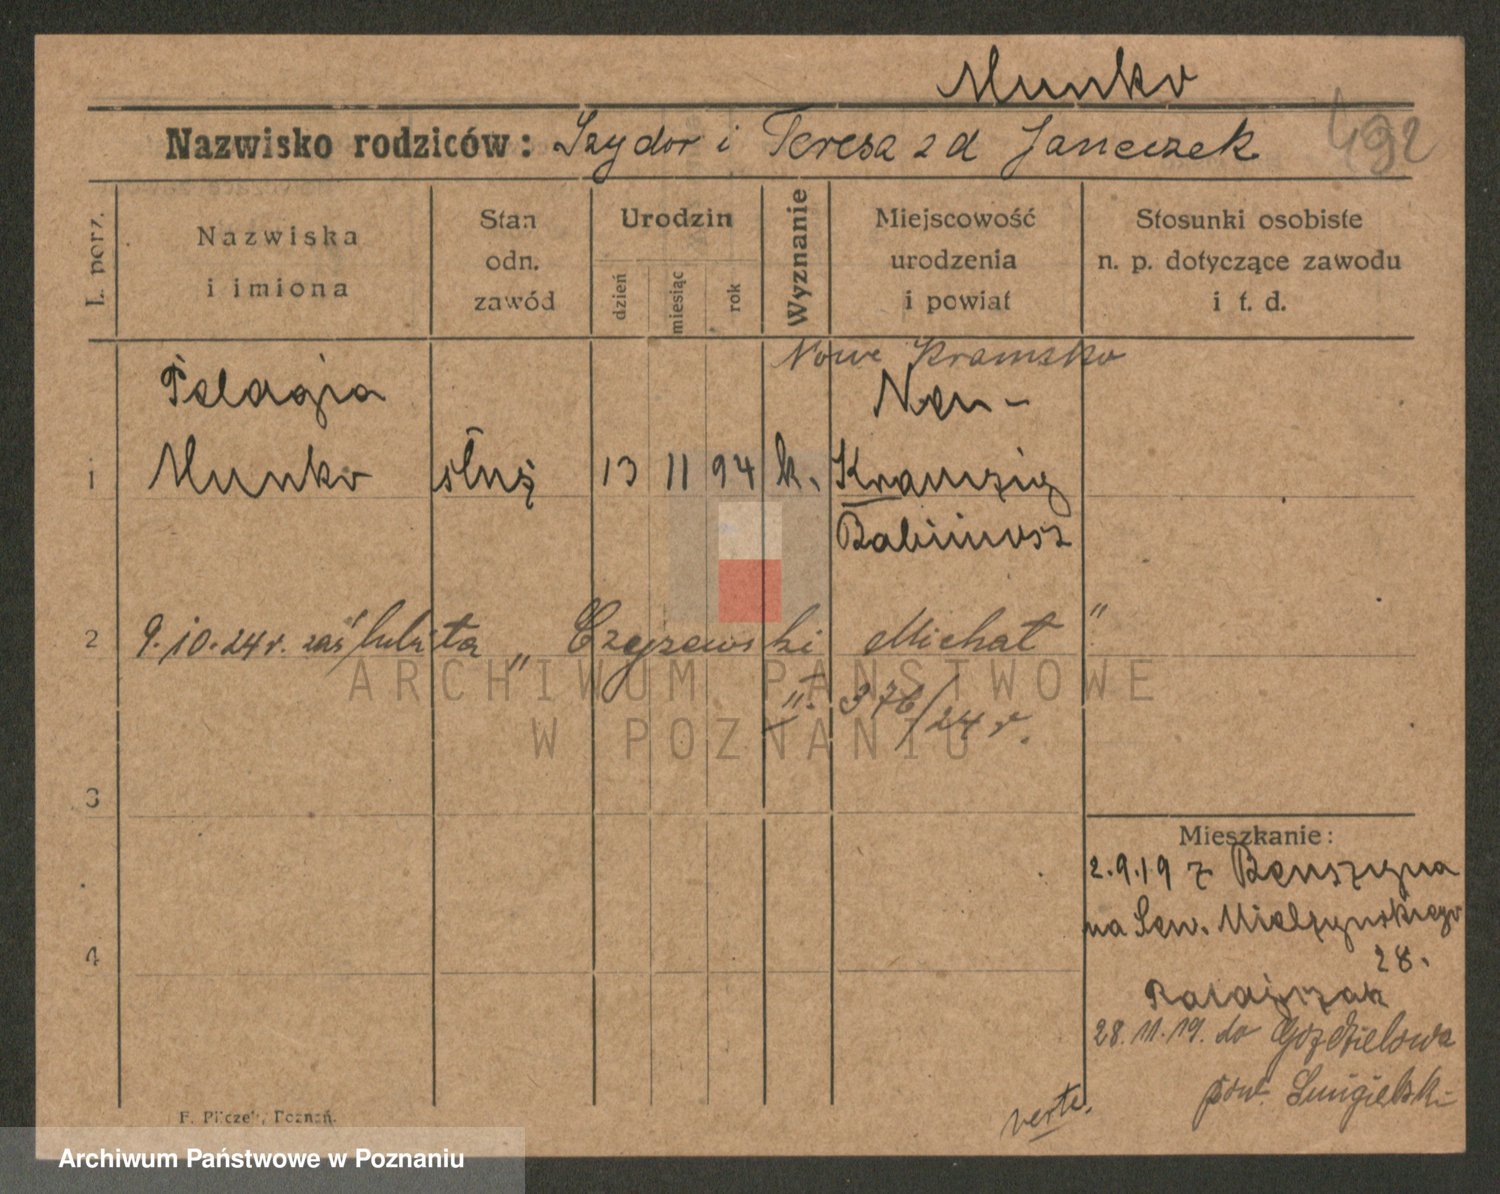 Munko
Nazwisko rodziców: Izydor i Teresa z d Janeczek
492
L. porz.
Nazwiska
i imiona
Stan
odn.
zawód
Urodzin
dzień
miesiąc
rok
Wyznanie
Miejscowość
urodzenia
i powiat
Stosunki osobiste
n. p. dotyczące zawodu
i t. d.
Nowe Kramsko
Pelagia
Neu-
1 Munko służ 13 11 94 k. Kramzig
Babimost
2 9.10.24 r. zaślubiła „Czyżewski Michał"
II. 376/24 r.
3
Mieszkanie:
2.9.19 z
na Sew. Mielżyńskiego
4
28.
Ratajczak
28.11.19. do
pow. Śmigielski
verte.
F. Pilczek, Poznań.
ARCHIWUM PAŃSTWOWE
W POZNANIU
Archiwum Państwowe w Poznaniu